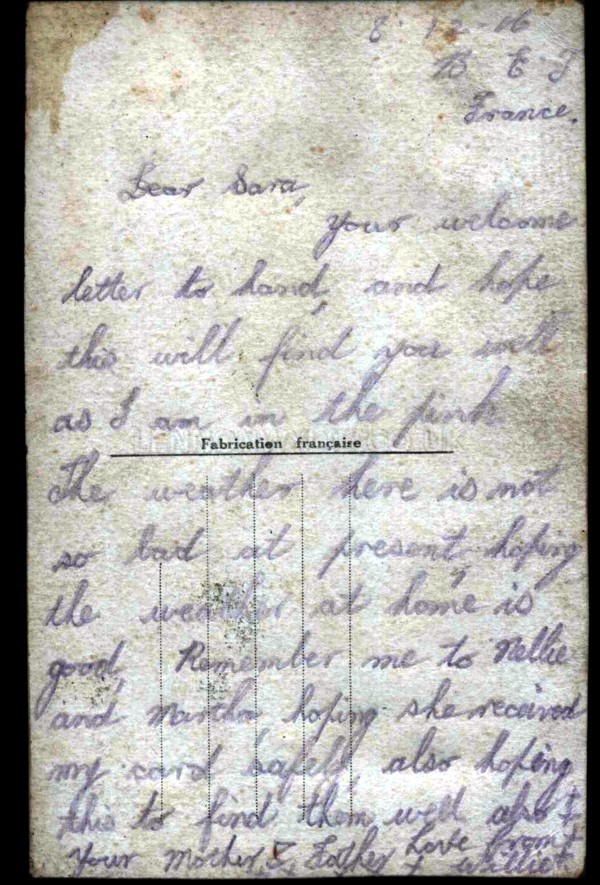 8-12-16
B E F
France.
Dear Sara,
Your welcome
letter to hand, and hope
this will find you well
as I am in the pink
Fabrication française
The weather here is not
so bad at present, hoping
the weather at home is
good, Remember me to Nellie
and Martha hoping she received
my card safely, also hoping
this to find them well also &
Your Mother, & Father, love from
Willie